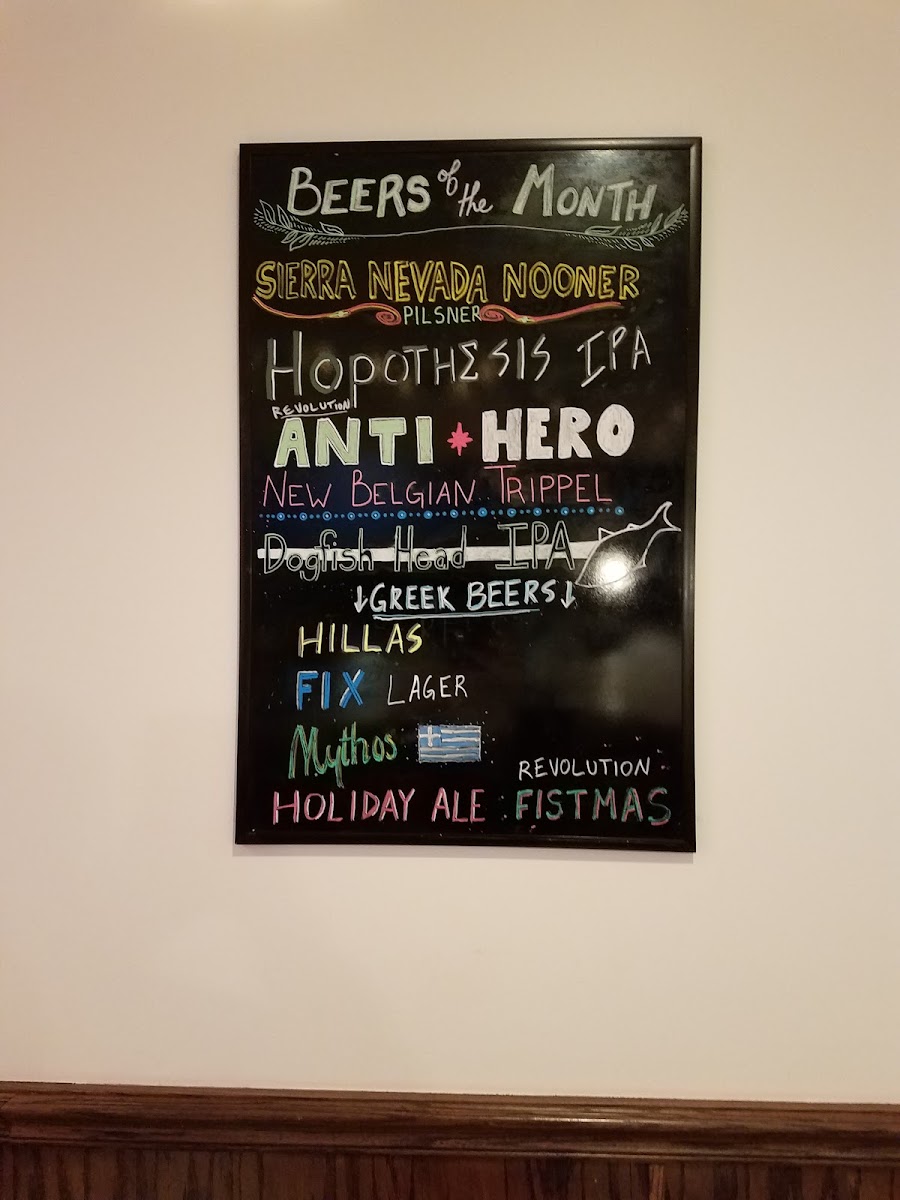 BEERS of the MONTH
SIERRA NEVADA NOONER
PILSNER
HOPOTHΣSIS IPA
REVOLUTION
ANTI HERO
NEW BELGIAN TRIPPEL
Dogfish Head IPA
↓GREEK BEERS↓
HILLAS
FIX LAGER
Mythos
REVOLUTION
HOLIDAY ALE FISTMAS